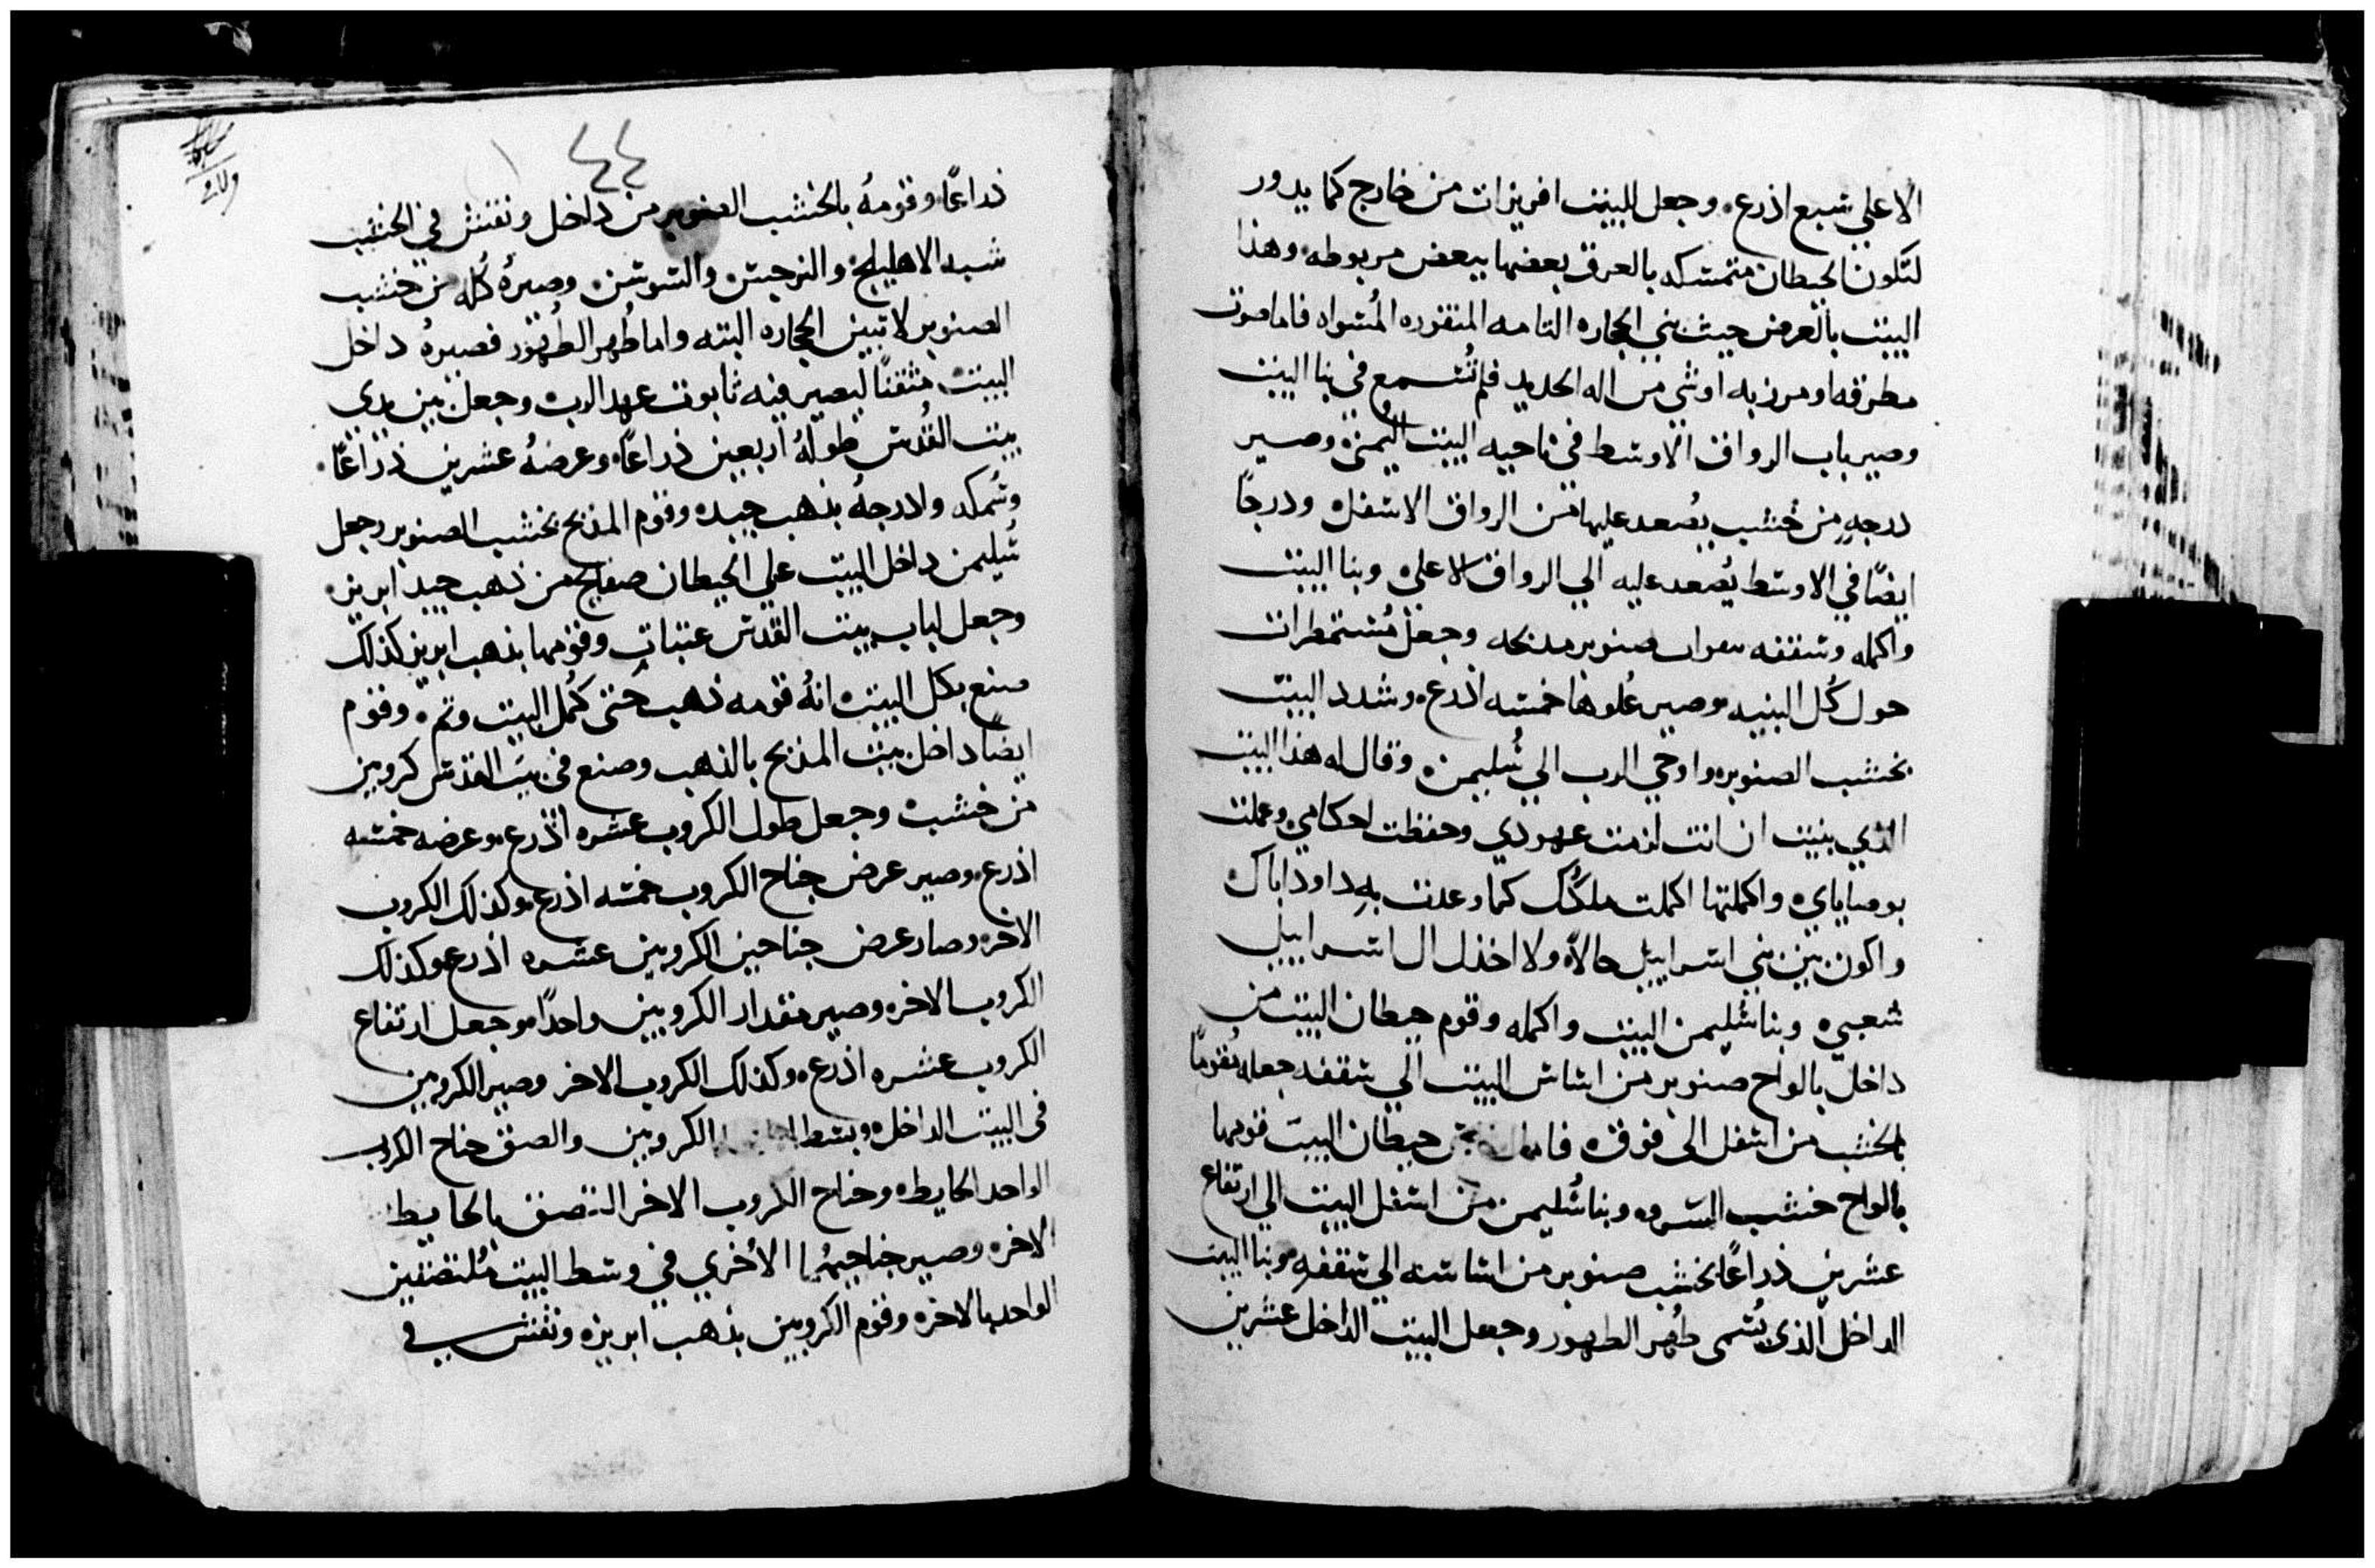 الاعلي سبع اذرع. وجعل للبيت افريزات من خارج كما يدور
لتكون الحيطان متمسكه بالعرق بعضها ببعض مربوطه. وهذا
البيت بالعرض حيث بني الحجاره التامه المنقوره المُسواه فاما صوت
مطرقه او مرزبه او شي من اله الحديد فلم تُسمع في بنا البيت
وصير باب الرواق الاوسط في ناحيه البيت اليُمنى وصير
درجهٍ من خشب يصعد عليها من الرواق الاسفل ودرجًا
ايضًا في الاوسط يُصعد عليه الي الرواق الاعلى وبنا البيت
واكمله وسقفه صنوبر وجعل مُستمطرات
حول كُل البنيه وصير عُلوها خمسه اذرع. وشدد البيت
بخشب الصنوبر. واوحي الرب الي سُليمن. وقال له هذا البيت
الذي بنيت ان انت لزمت عهودي وحفظت احكامي وعملت
بوصاياي واكملتها اكملت ملكُك كما وعدت بهِ داود اباك
واكون بين بني اسراييل حالاً. ولا اخذل ال اسراييل
شعبي. وبنا سُليمن البيت واكمله وقوم حيطان البيت من
داخل بالواح صنوبر من اساس البيت الي سقفه جعله مُقومًا
بالخشب من اسفل الى فوق. حيطان البيت قومها
بالواح خشب السرو. وبنا سُليمن من اسفل البيت الي ارتفاع
عشرين ذراعًا بخشب صنوبر من اساسه الي سقفهِ وبنا البيت
الداخل الذي يُسمى طُهر الطهور وجعل البيت الداخل عشرين
٤٤
ذراعًا وقومهُ بالخشب الصنوبر من داخل ونقش في الخشب
شبه الاهليلج والنرجس والسوسن وصيرهُ كُله من خشب
الصنوبر لا تبين الحجاره البته واما طُهر الطُهور فصيرهُ داخل
البيت متقنًا ليصير فيه تابوت عهد الرب وجعل بين يدي
بيت القُدس طولهُ اربعين ذراعًا. وعرضهُ عشرين ذراعًا.
وسُمكه ولادرجهُ بذهب جيد. وقوم المذبح بخشب الصنوبر وجعل
سُليمن داخل البيت علي الحيطان صفايح من ذهب جيد ابريز.
وجعل لباب بيت القدس عتباتٍ وقومها بذهب ابريز كذلك
صنع بكل البيت. انهُ قومه ذهب حتى كُمل البيت وتم. وقوم
ايضًا داخل بيت المذبح بالذهب وصنع في بيت القدس كروبين
من خشب وجعل طول الكروب عشره اذرع. وعرضه خمسه
اذرع. وصير عرض جناح الكروب خمسه اذرع. وكذلك الكروب
الاخر. وصار عرض جناحين الكروبين عشره اذرع وكذلك
الكروب الاخر. وصير مقدار الكروبين واحدًا. وجعل ارتفاع
الكروب عشره اذرع. وكذلك الكروب الاخر وصير الكروبين
في البيت الداخل. وبسط الكروبين والصق جناح الكروب
الواحد الحايط. وجناح الكروب الاخر التصق بالحايط
الاخر. وصير جناحيهُما الاُخري في وسط البيت مُلتصقين
الواحد بالاخر. وقوم الكروبين بذهب ابريز. ونقش في